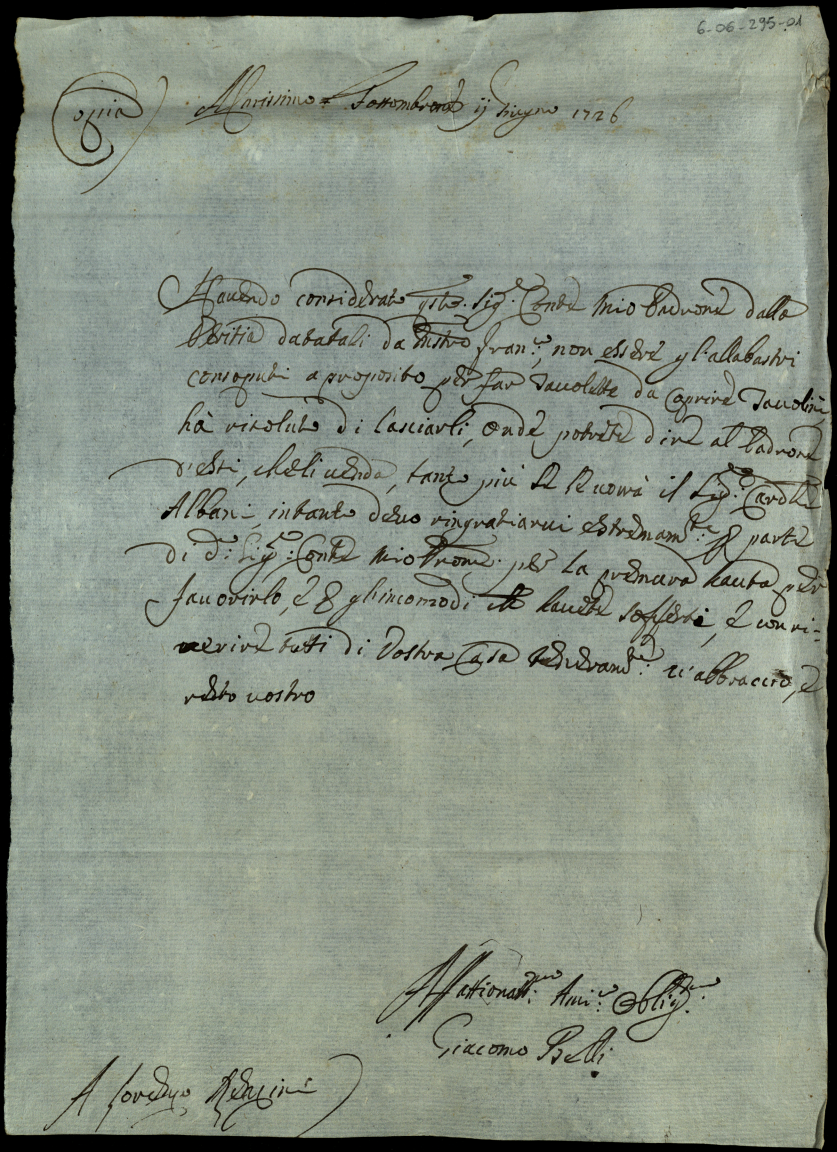 6-06-295-01
Copia
Carissimo = Fossombrone 11 Giugno 1726
Havendo considerato qsto. Sig.e Conte mio Padrone dalla
Peritia datali da Mastro Fran.co, non essere gl'allabastri
consaputi a proposito per far Tavolette da coprire Tavolini,
hà risoluto di lasciarli, onde potrete dire al Padrone
d'essi, che li venda, tanto più se le vorrà il Sig.e Cardle
Albani, intanto devo ringratiarvi estremam.te p parte
di d.o Sig.e Conte mio Prone. per la premura hauta per
favorirlo, e p gl'incomodi che havete sofferti, e con ri-
verire tutti di Vostra Casa v'abbraccio, e
resto vostro
Affettionatis.mo Ami.co Oblig.mo
Giacomo Belli
A Lorenzo